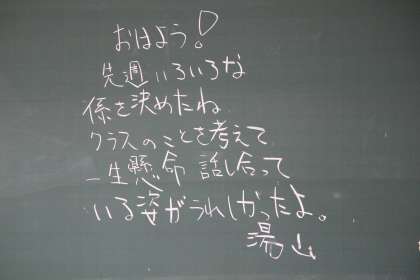 おはよう!
先週いろいろな
係を決めたね
クラスのことを考えて
一生懸命 話し合って
いる姿がうれしかったよ。
湯山